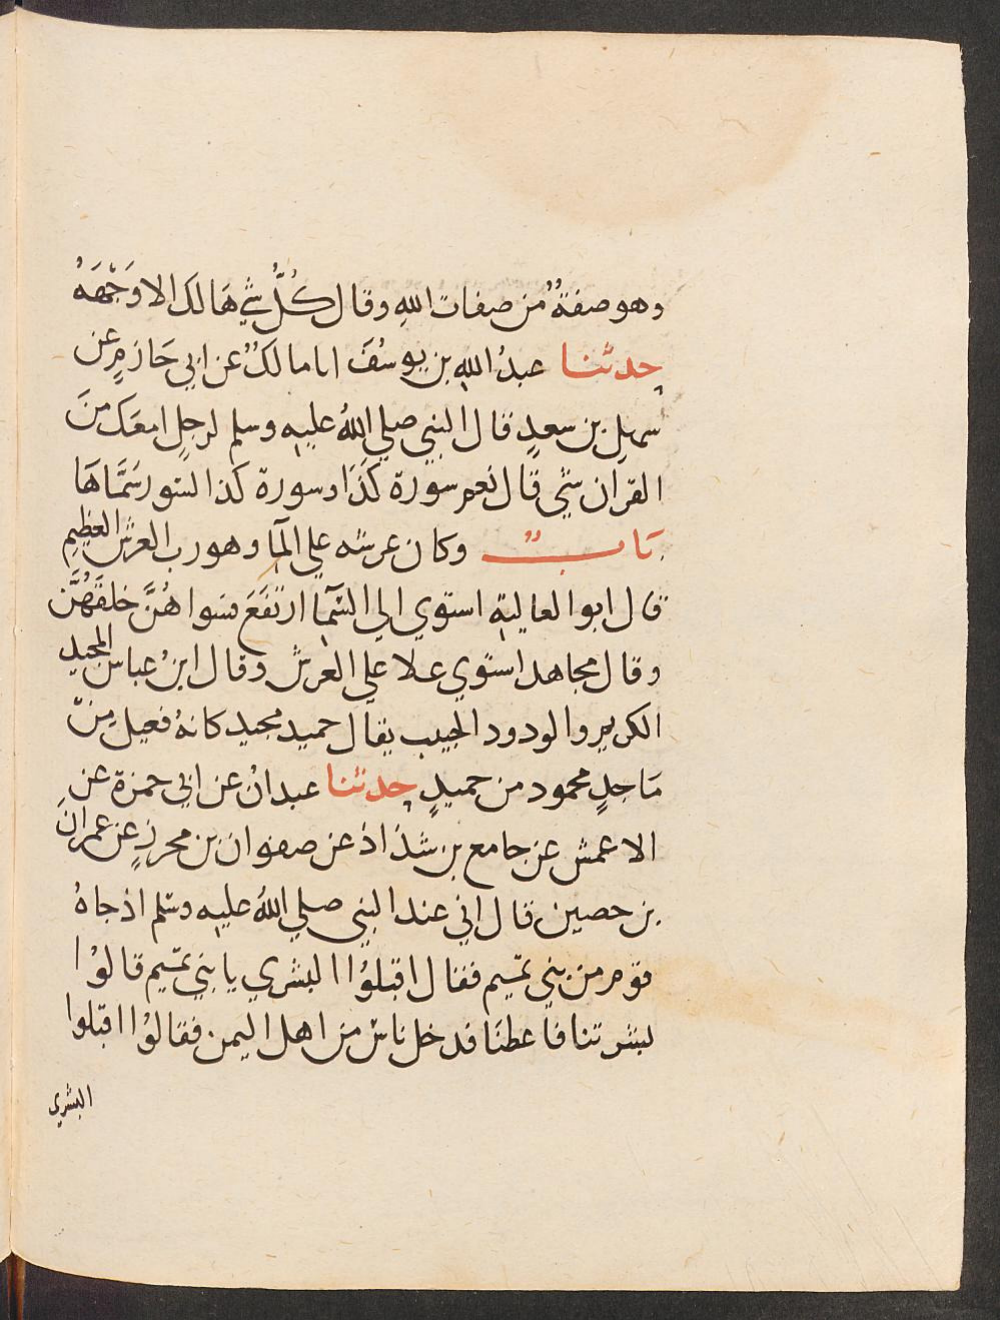 وهو صفةٌ من صفات اللهِ وقال كُلُّ شي هَالك الا وَجْهَهُ
حدثنا عبدُ اللهِ بن يوسُفَ انا مالكٌ عن ابي حَازمٍ عن
سهلِ بن سعدٍ قال النبي صلي اللهُ عليه وسلم لرجلٍ امعَك منَ
القران شي قال نعم سورة كَذَا وسورة كذا لسور سَمَّاهَا
بَاب وكان عرشه علي المآ وهو رب العرش العظيمِ
قال ابو العالية استوي الي السَّمآ ارتفَعَ فسواهُنَّ خلقَهُنَّ
وقال مجاهد استوي علا علي العرش وقال ابنُ عباس المجيد
الكريم والودود الحبيب يقال حميد مجيد كانهُ فعيل مِنْ
مَاجدٍ محمود من حميدٍ حدثنا عبدانُ عن ابي حمزة عن
الاعمش عن جامع بن شدّاد عن صفوان بن محرزٍ عن عمرانَ
بن حصين قال اني عند النبي صلي اللهُ عليه وسّلم اذ جاهُ
قوم من بني تميم فقال اقبلُوا البشري يا بني تميم قالُوا
بشرتنا فاعطنَا فدخل ناسٌ من اهل اليمن فقالُوا اقبلوا
البشري